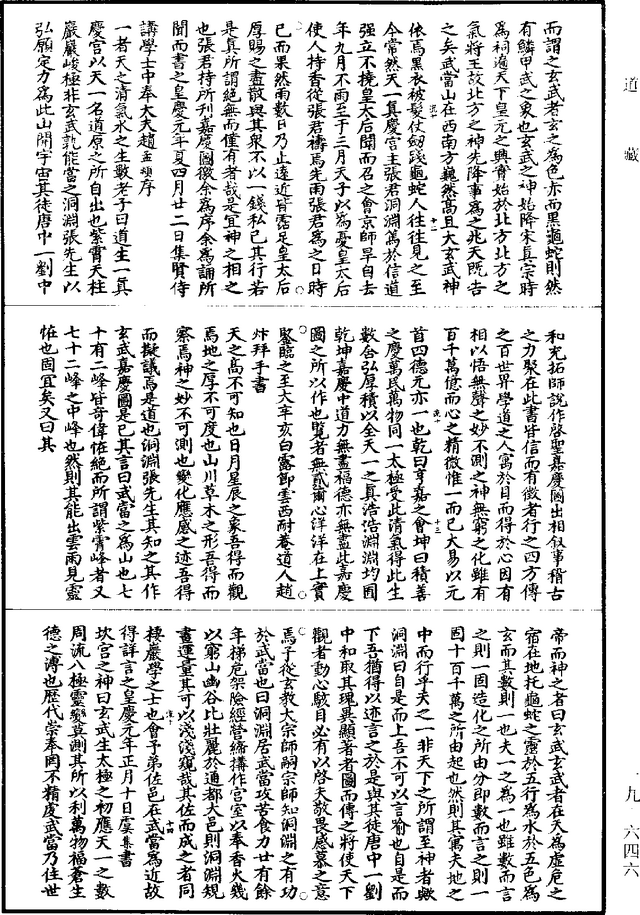 道藏
而謂之玄武者玄之為色亦而黑龜蛇則然
有鱗甲武之象也玄武之神始降宋真宗時
為祠遍天下皇元之興實始於北方北方之
氣將王故北方之神先降事為之兆天既告
之矣武當山在西南方巍然高且大玄武神
依焉黑衣被髮仗劒踐龜蛇人往往見之至
今常然天一真慶宮主張君洞淵篤於信道
强立不撓皇太后聞而召之會京師旱自去
年九月不雨至于三月天子以為憂皇太后
使人持香從張君禱焉先雨張君為之日時
已而果然雨數日乃止遠近皆霑足皇太后
厚賜之盡散與其衆不以一錢私已其行若
是真所謂絕無而僅有者哉是冝神之相之
也張君持所刊嘉慶圖徵余為序余為誦所
聞而書之皇慶元年夏四月廿二日集賢侍
講學士中奉大夫趙孟頫序
一者天之清氣水之生數老子曰道生一真
慶宮以天一名道原之所自出也紫霄天柱
巖巖峻極非玄武孰能當之洞淵張先生以
弘願定力為此山開宇宙其徒唐中一劉中
和光拓師說作啓聖嘉慶圖出相叙事稽古
之力聚在此書皆信而有徵者行之四方傳
之百世界學道之人寓於目而得於心因有
相以悟無聲之妙不測之神無窮之化雖有
百千萬億而心之精微惟一而已大易以元
首四德元亦一也乾曰亨嘉之會坤曰積善
之慶萬民萬物同一太極受此清氣得此生
數合弘厚積以全天一之真浩浩淵淵均囿
乾坤嘉慶中道力無盡福德亦無盡此嘉慶
圖之所以作也覽者無貳爾心洋洋在上實
鑒臨之至大辛亥白露節雲西耐菴道人趙
炞拜手書
天之高不可知也日月星辰之象吾得而觀
焉地之厚不可度也山川草木之形吾得而
察焉神之妙不可測也變化應感之迹吾得
而擬議焉是道也洞淵張先生其知之其作
玄武嘉慶圖是已其言曰武當之為山也七
十有二峰皆奇偉佐絕而所謂紫霄峰者又
七十二峰之中峰也然則其能出雲雨見靈
恠也固冝矣又曰其
帝而神之者曰玄武玄武者在天為虛危之
宿在地托龜蛇之靈於五行為水於五色為
玄而其數則一也夫一之為一也雖數而言
之則一固造化之所由分即數而言之則一
因十百千萬之所由起也然則其寓夫地之
中而行乎夫之一非天下之所謂至神者歟
洞淵曰自是而上吾不可以言喻也自是而
下吾猶得以迹言之於是與其徒唐中一劉
中和取其瑰異顯著者圖而傳之將使天下
觀者動心駭目必有以啓夫敬畏感慕之意
焉子從玄教大宗師嗣宗師知洞淵之有功
於武當也曰洞淵居武當攻苦食力廿有餘
年梯危架險經營締搆作宮室以奉香火幾
以窮山幽谷比壯麗於通都大邑則洞淵規
畫運量其可以淺淺窺哉其佐而成之者同
棲巖學之士也會予弟佐邑在武當為近故
得詳言之皇慶元年正月十日虞集書
坎宮之神曰玄武生太極之初應天一之數
周流八極靈變莫測其所以利萬物福蒼生
德之溥也歷代崇奉罔不精虔武當乃住世
一九·六四六